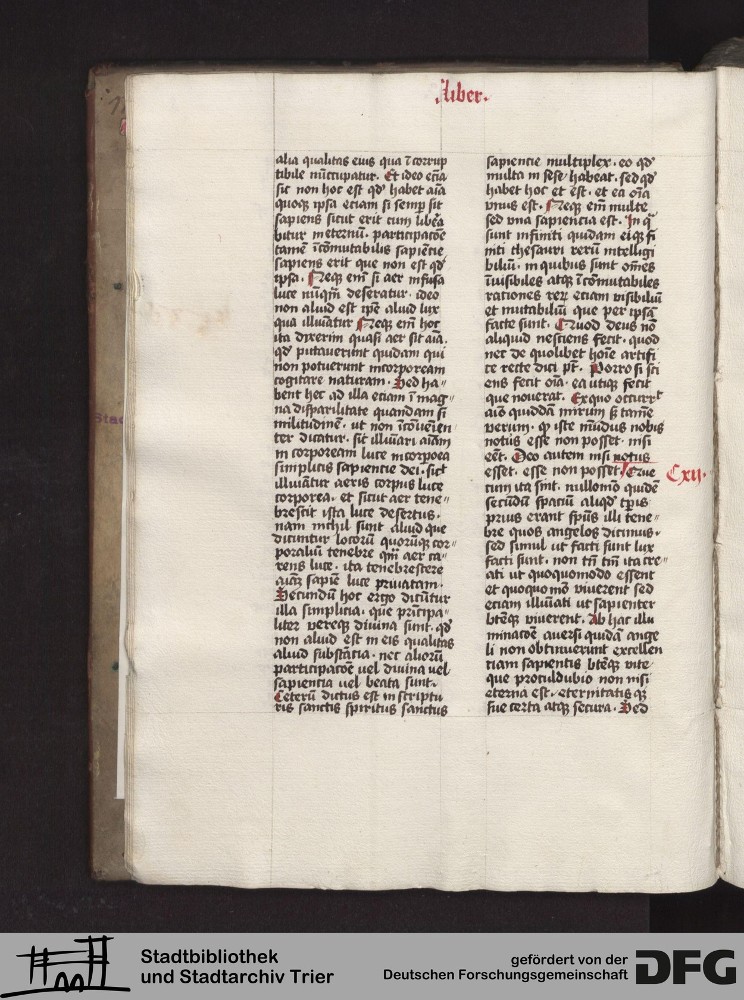 Liber.
alia qualitas eius qua ĩ corrup
tibile nũcupatur. Et ideo eciã
sic non hoc est qd' habet aĩa
quoqꝫ ipsa eciam si semp̱ sit
sapiens sicut erit cum liber̃a
bitur ineternũ. participacõe
tamẽ ĩcõmutabilis sapiẽtie
sapiens erit que non est qd'
ipsa. Neqꝫ em̃ si aer infusa
luce nũqm̃ deseratur. ideo
non aliud est ip̃e aliud lux
qua illuĩatur Neqꝫ em̃ hoc
ita dixerim quasi aer sit aĩa.
qd' putauerunt quidam qui
non potuerunt incorpoream
cogitare naturam. Sed ha〃
bent hec ad illa eciam ĩ mag〃
na disparilitate quandam si
militudinẽ. ut non ĩcõueien〃
ter dicatur. sic illuĩari aĩam
in corpoream luce incorpoea
simplicis sapientie dei. sict̃
illuiãtur aeris corpus luce
corporea. et sicut aer tene〃
brescit ista luce desertus.
nam nichil sunt aliud que
dicuntur locorũ quorũqꝫ cor〃
poraliũ tenebre qm̃ aer ca〃
rens luce. ita tenebrescere
aĩaꝫ sapiẽ luce priuatam.
Secundũ hoc ergo dicũtur
illa simplicia. que prĩcipa〃
liter vereqꝫ diuina sunt. qd'
non aliud est in eis qualitas
aliud substãtia. nec alioruȝ
participacõe uel diuina uel
sapiencia uel beata sunt.
Ceterũ dictus est in scriptu
ris sanctis spiritus sanctus
sapiencie multiplex. eo qd'
multa in sese habeat. sed qd'
habet hoc et est. et ea oĩa
vnus est. Neqꝫ em̃ multe
sed vna sapiencia est. In q̃
sunt infiniti quidam eiqꝫ fi
niti thesauri rerũ intelligi
biliũ. in quibus sunt om̃es
ĩuisibiles atqꝫ ĩcõmutabiles
rationes reꝝ eciam visibiliũ
et mutabiliũ que per ipsã
facte sunt. Quod deus nõ
aliquid nesciens fecit. quod
nec de quolibet hoĩe artifi
ce recte dici pt̃. Porro si sci
ens fecit oĩa. ea utiqꝫ fecit
que nouerat. Ex quo occurrͭ
aĩo quiddã mirum sꝫ tamẽ
verum. ꝙ iste mũdus nobis
notus esse non posset. nisi
eẽt. Deo autem nisi notus
esset. esse non posset. Que
cum ita sint. nullomo quidẽ
Cxij.
secũdũ spaciũ aliqd' tp̃is
prius erant sp̃us illi tene〃
bre quos angelos dicimus.
sed simul ut facti sunt lux
facti sunt. non tñ tm̃ ita cre〃
ati ut quoquomodo essent
et quoquomo viuerent sed
eciam illuiati ut sapienter
btẽqꝫ viuerent. Ab hac illu
minacõe auersi quidã ange
li non obtinuerunt excellen
ciam sapientis btẽqꝫ vite
que proculdubio non nisi
eterna est. eternitatis qꝫ
sue certa atqꝫ secura. Sed
Stadtbibliothek
und Stadtarchiv Trier
gefördert von der
Deutschen Forschungsgemeinschaft
DFG